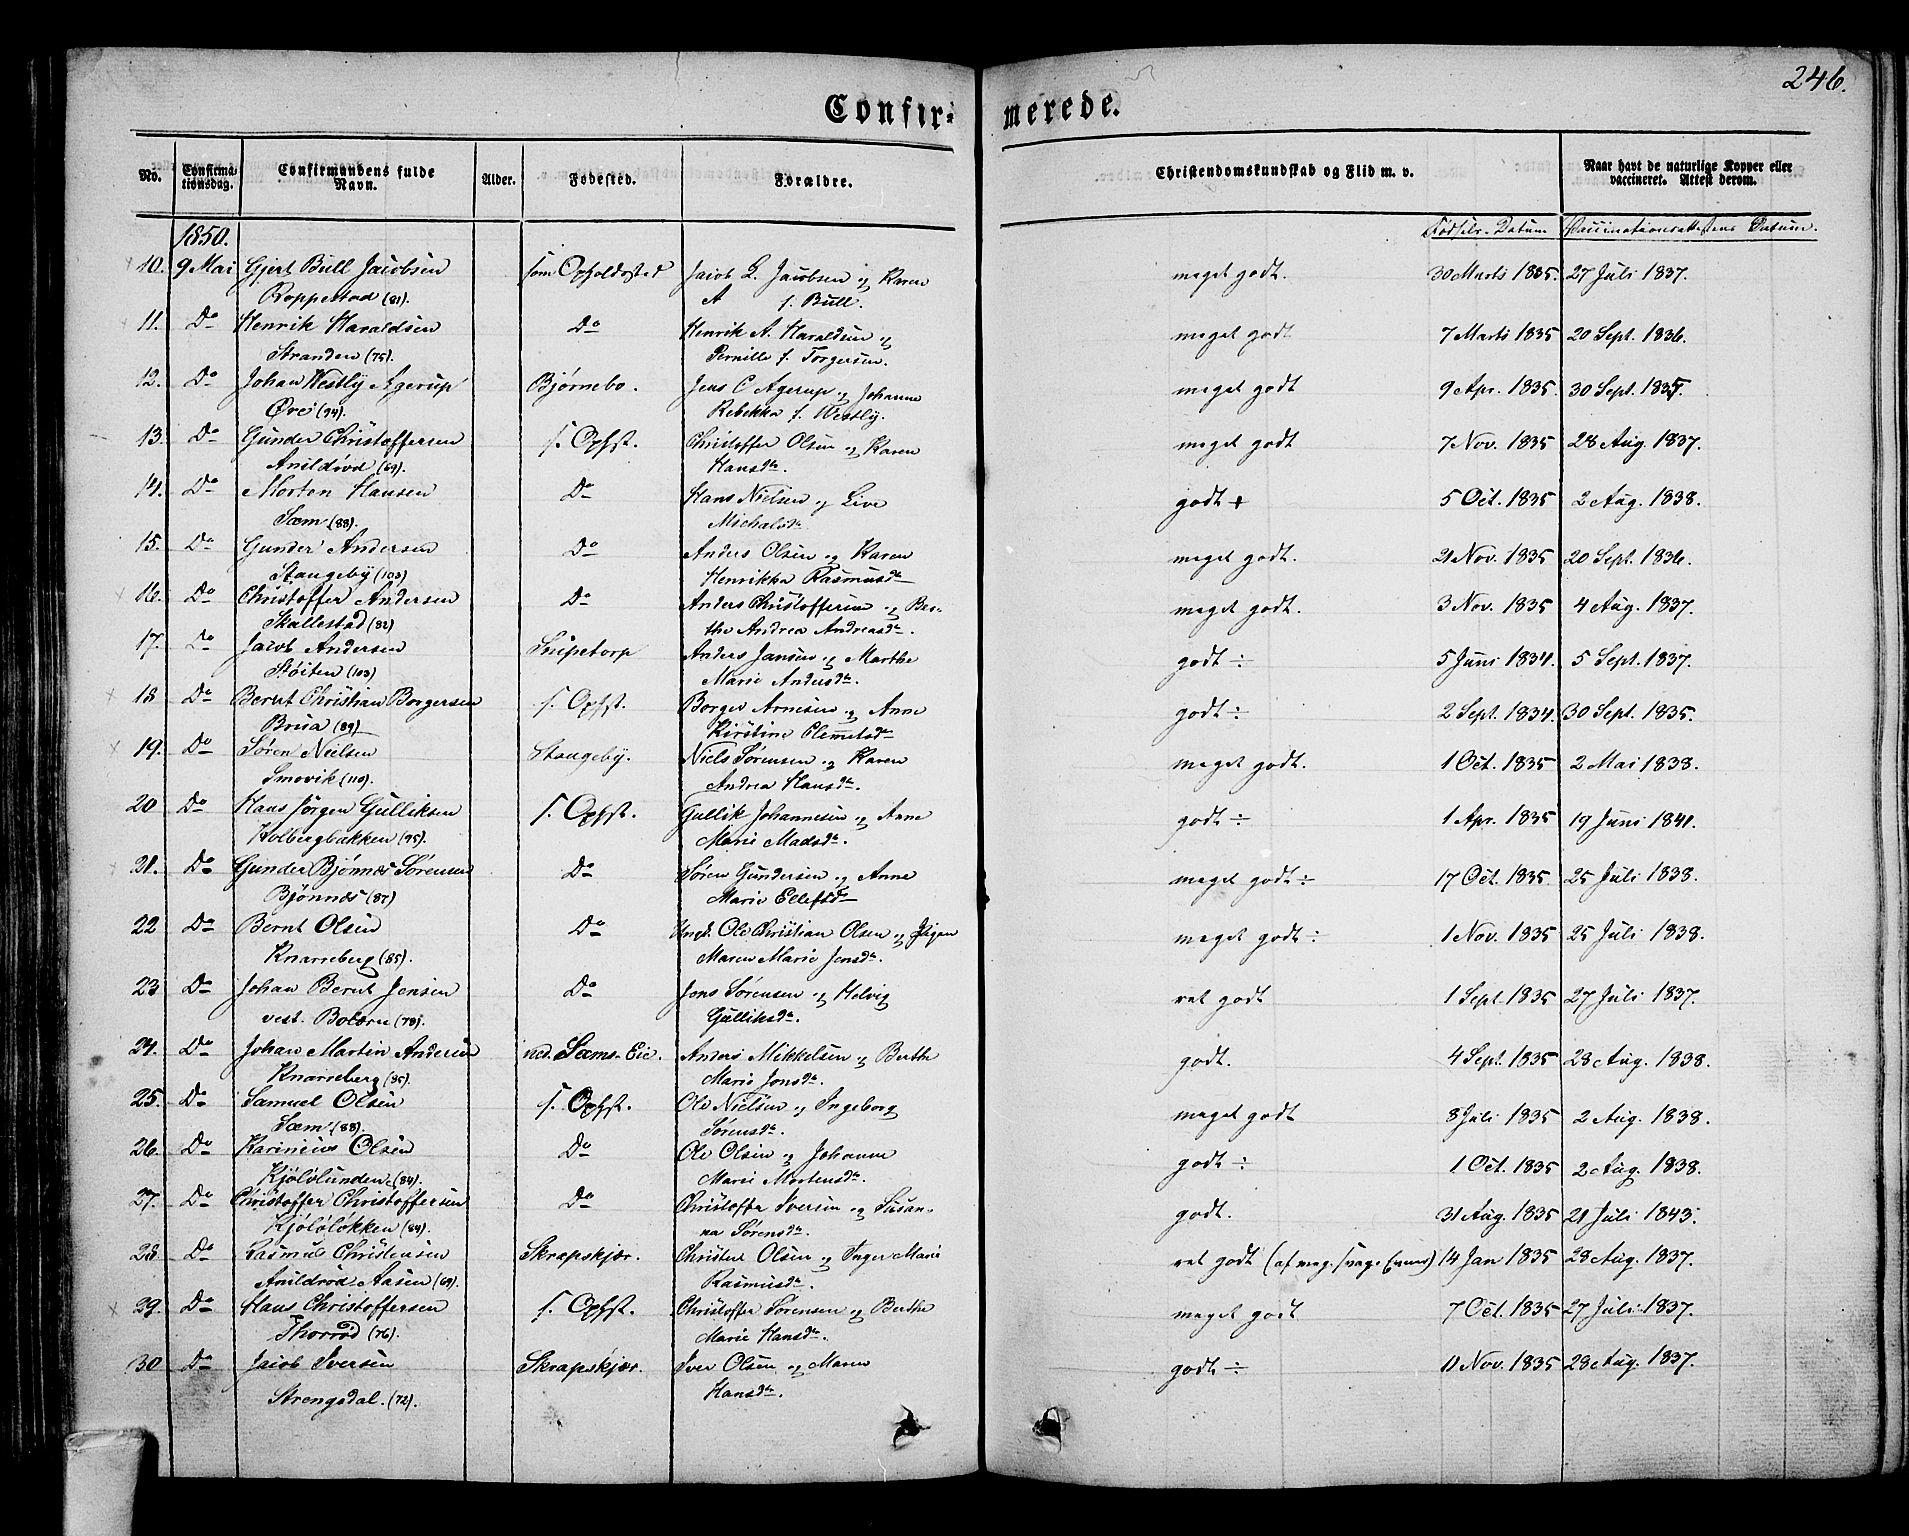 246.
Confir- merede.
No. Confirmationsdag. Confirmandens fulde Navn. Alder. Fødested. Forældre. Christendomskundskab og Flid m. v. Naar havt de naturlige Kopper eller vaccineret. Attest derom.
1850. Fødsels-Datum Vaccinationsattestens Datum.
10. 9 Mai Gjert Bull Jacobsen som Opholdssted Jacob L. Jacobsen og Karen meget godt. 30 Marts 1835. 27 Juli 1837.
Roppestad (81). A f. Bull.
11. Do Henrik Haraldsen Do Henrik A. Haraldsen og meget godt 7 Marts 1835 20 Sept. 1836.
Stranden (75). Pernille f. Torgersen.
12. Do Johan Westly Agerup Bjørnebo. Jens C Agerup og Johanne meget godt 9 Apr. 1835 30 Sept. 1835.
Øre (94). Rebekka f. Westly.
13. Do Gunder Christoffersen s. Opfst. Christoffer Olsen og Karen meget godt 7 Nov. 1835 28 Aug. 1837.
Arildrød (69). Hansdr.
14. Do Morten Hansen Do Hans Nielsen og Live godt + 5 Oct. 1835 2 Aug. 1838.
Sæm (88). Michalsdr
15. Do Gunder Andersen Do Anders Olsen og Karen meget godt. 21 Nov. 1835 20 Sept. 1836.
Stangeby (103) Henrikka Rasmusdr
16. Do Christoffer Andersen Do Anders Christoffersen og Ber- meget godt. 3 Nov. 1835 4 Aug. 1837.
Skallestad (82) the Andrea Andreasdr.
17. Do Jacob Andersen Snipetorp Anders Jansen og Marthe godt ÷ 5 Juni 1834. 5 Sept. 1837.
Støiten (103) Marie Andersdr.
18 Do Bernt Christian Borgersen s. Opfst. Borger Arnesen og Anne godt ÷ 2 Sept. 1834. 30 Sept. 1835.
Brua (89) Kirstine Clemetsdr
19. Do Søren Nielsen Stangeby. Niels Sørensen og Karen meget godt. 1 Oct. 1835 2 Mai 1838.
Smovik (110). Andrea Hansdr
20 Do Hans Jørgen Gulliksen s. Opfst. Gullik Johannesen og Anne godt ÷ 1 Apr. 1835 19 Juni 1841.
Holbergbakken (95). Marie Madsdr.
21. Do Gunder Bjønnes Sørensen Do Søren Gundersen og Anne meget godt ÷ 17 Oct. 1835. 25 Juli 1838.
Bjønnes (87) Marie Ellefsdr
22 Do Bernt Olsen Do Ungk. Ole Christian Olsen og Pigen meget godt ÷ 1 Nov. 1835 25 Juli 1838.
Knarreberg (85). Maren Marie Jensdr.
23 Do Johan Bernt Jensen Do Jens Sørensen og Helvig ret godt 1 Sept. 1835 27 Juli 1837.
vest. Bolærn (78). Gulliksdr.
24. Do Johan Martin Andersen ned. Sæms-Eie. Anders Mikkelsen og Berthe godt. 4 Sept. 1835 28 Aug. 1838.
Knarreberg (85). Marie Jonsdr.
25. Do Samuel Olsen s. Opfst. Ole Nielsen og Ingeborg meget godt 8 Juli 1835 2 Aug. 1838.
Sæm (88). Sørensdr.
26. Do Karinius Olsen Do Ole Olsen og Johanne godt ÷ 1 Oct. 1835 2 Aug. 1838.
Kjølølunden (84). Marie Mortensdr.
27. Do Christoffer Christoffersen Do Christoffer Iversen og Susan- godt. 31 Aug. 1835 21 Juli 1843.
Kjøløløkken (84). na Sørensdr
28. Do Rasmus Christensen Skrapskjær. Christen Olsen og Inger Marie ret godt (af meg. svage Evner) 14 Jan 1835 28 Aug. 1837.
Arildrød Aasen (69). Rasmusdr.
29. Do Hans Christoffersen s. Opfst. Christoffer Sørensen og Berthe meget godt 7 Oct. 1835 27 Juli 1837.
Thorrød (76). Marie Hansdr.
30 Do Jacob Iversen Skrapskjær. Iver Olsen og Maren godt ÷ 11 Nov. 1835 28 Aug. 1837.
Strengsdal. (72). Hansdr.